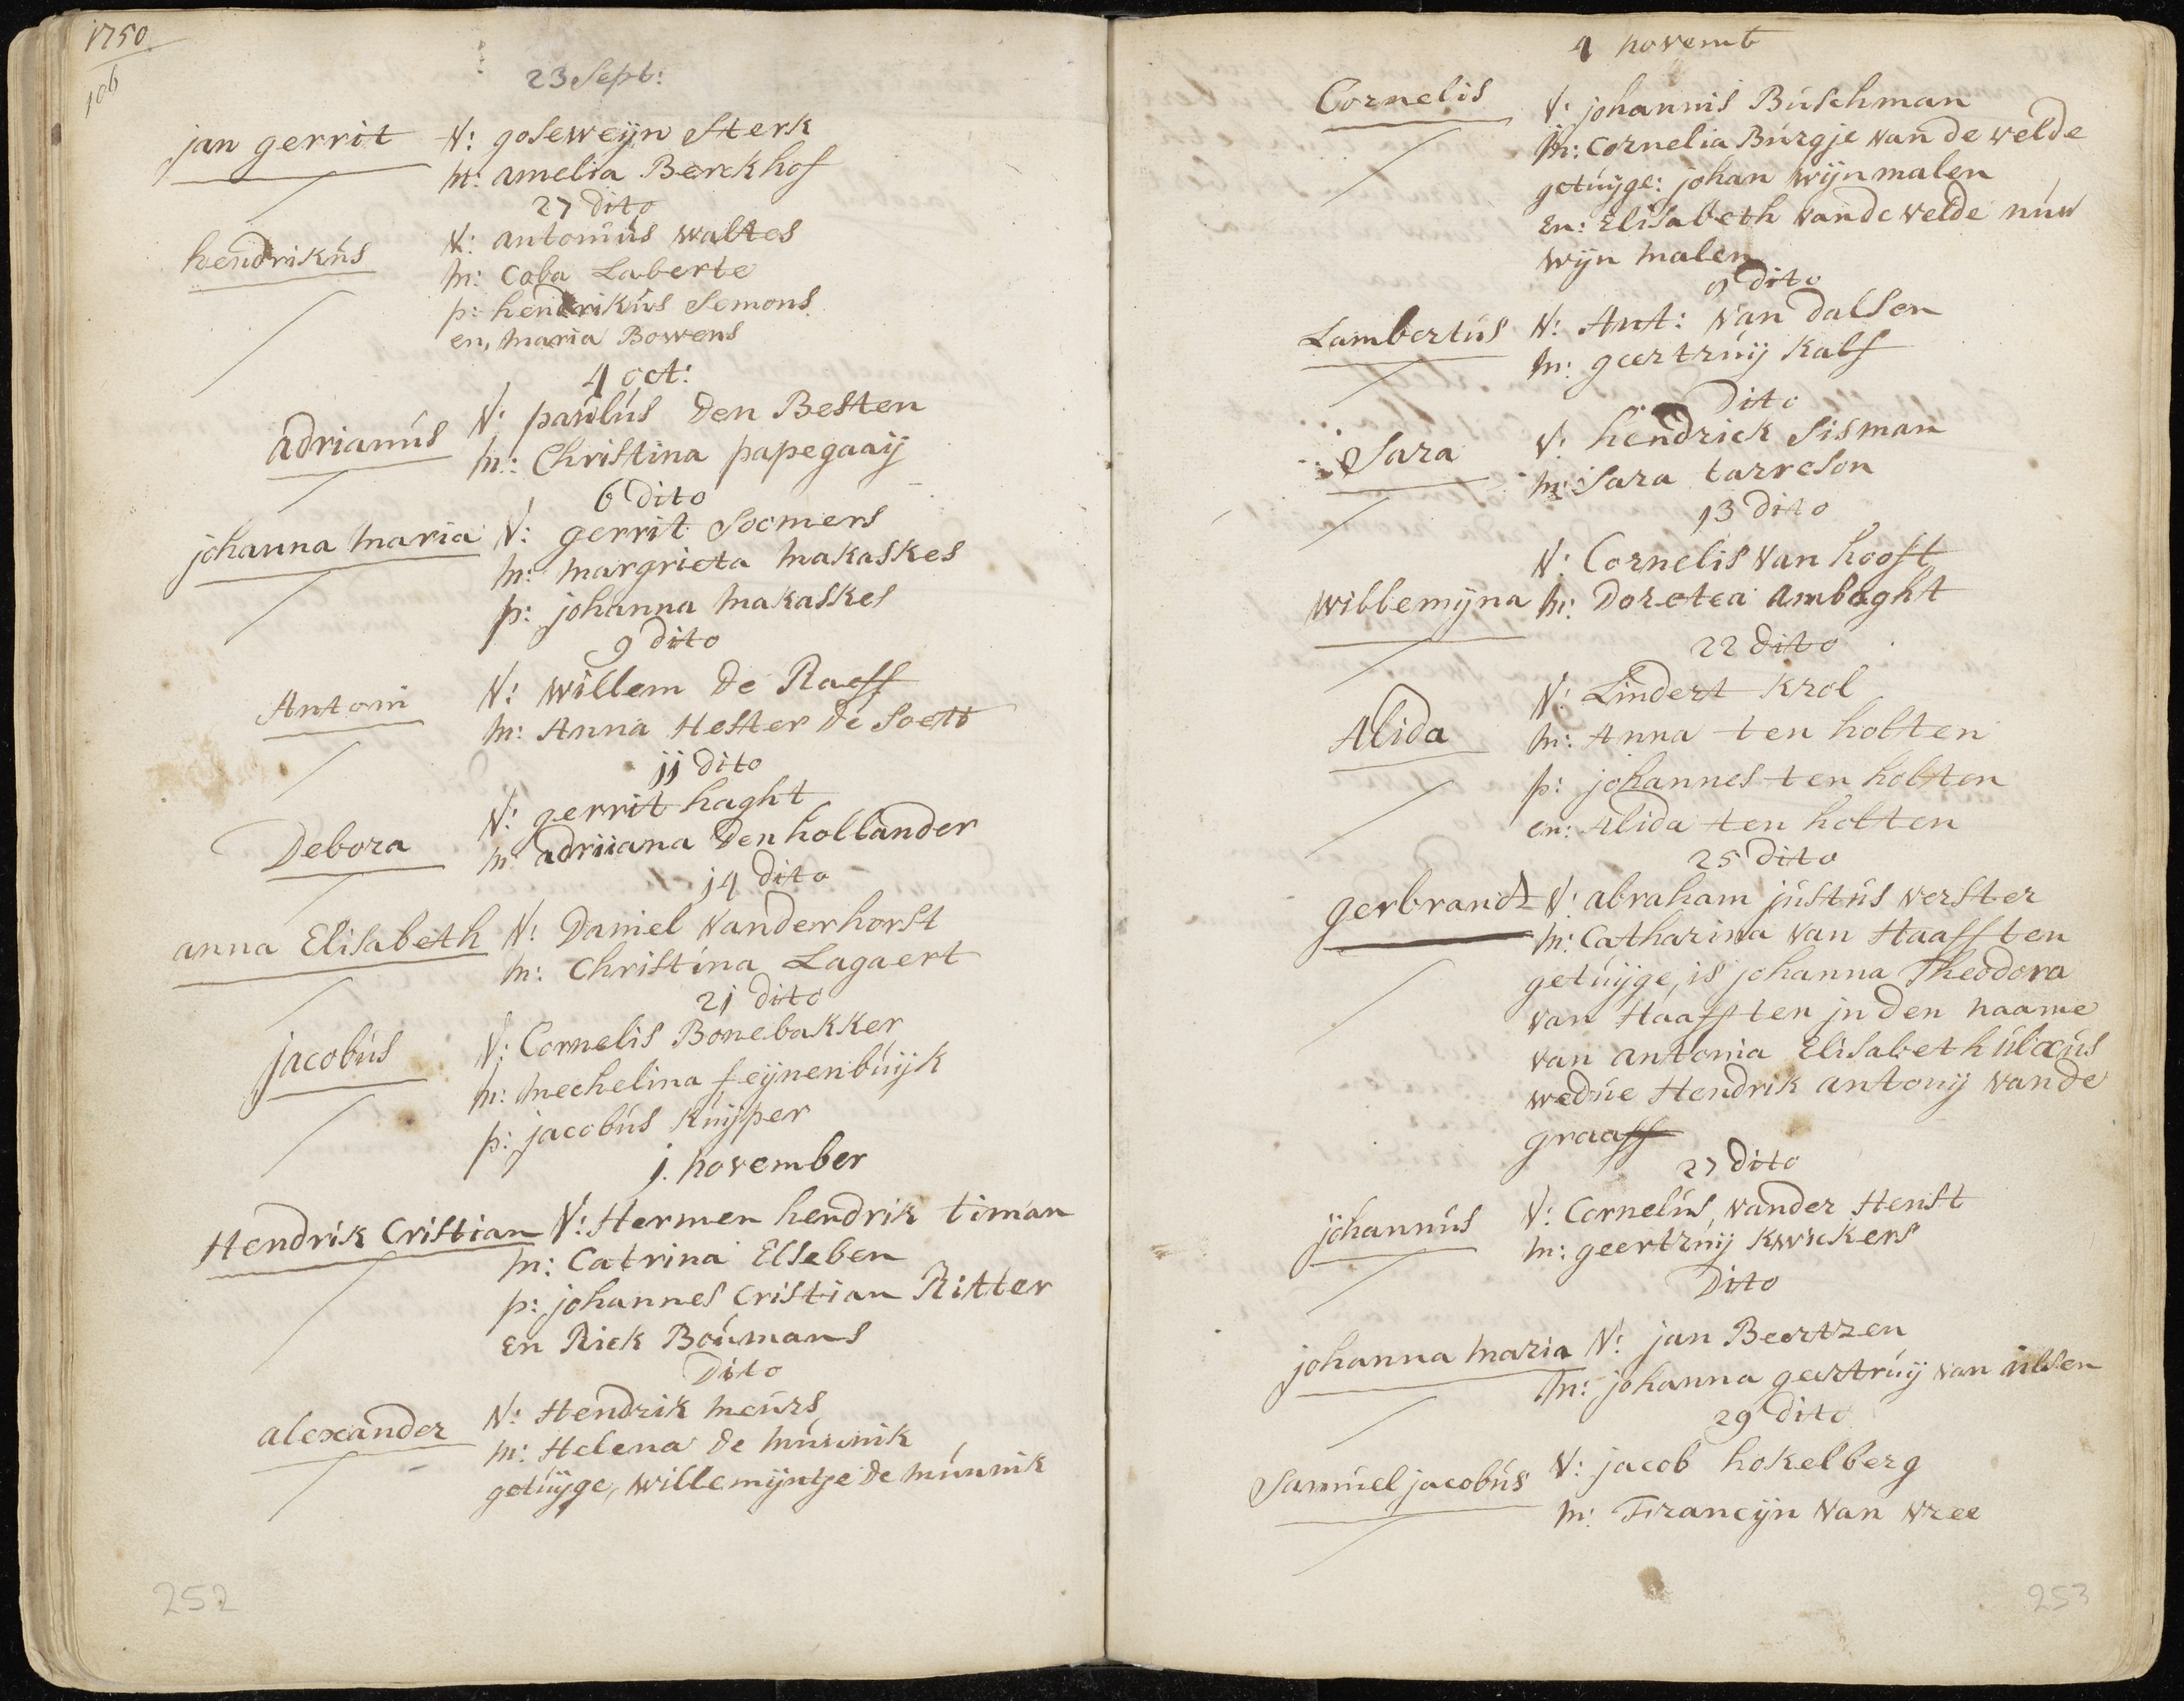 1750
106
23 Sept:
jan gerrit V: goseweijn Sterk
m: amelia Berckhof
27 dito
hendrikús V: antoniús waltes
m: Coba Laberte
p: hendrikús Semons
en, maria Bowens
4 oct:
adrianús V: paúlús den Besten
m: Christina papegaaij
6 dito
johanna maria V: gerrit Soomers
m: margrieta makaskes
p: johanna makaskes
9 dito
Antoni V: willem de Raeff
m: Anna Hester de Soett
jj dito
Debora V: gerrit haght
m adriiana den hollander
j4 dito
anna Elisabeth V: Daniel vanderhorst
m: Christina Lagaert
2j dito
jacobús V: Cornelis Bonebakker
m: mechelina feijnenbúijk
p: jacobús kúijper
j. november
Hendrik Cristian V: Hermen hendrik timan
m: Catrina Elseben
p: johannes Cristian Ritter
en Rick Boúmans
Dito
alexander V: Hendrik meúrs
m: Helena de múnnik
getúijge, willemijntje de múnnik
252
4 novemb
Cornelis V: johannis Búschman
m: Cornelia Búrgje van de velde
getúijge: johan wijnmalen
En: Elisabeth vande velde núw
wijn malen
9 dito
Lambertús V: Ant: van dalsen
m: geertrúij kalf
Dito
Sara V: hendrick Sisman
m: Sara tarreson
13 dito
V: Cornelis van hooft
willemijna m: Dorotea Ambaght
22 dito
Alida V: Lindert Krol
m: Anna ten holten
p: johannes ten holten
en: Alida ten holten
25 dito
gerbrandt V: abraham jústús verster
m: Catharina van Haafften
getúijge, is johanna Theodora
van Haafften jn den naame
van antonia Elisabeth úlxús
wedúe Hendrik antonij vande
graaff
27 dito
johannús V: Cornelús, vander Henst
m: geertrúij kwickers
Dito
johanna maria V: jan Beertzen
m: johanna geertrúij van úlsen
29 dito
Samúel jacobús V: jacob hokelberg
m: Francijn van vree
253